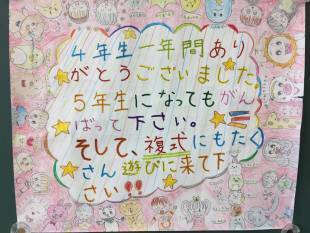 4年生一年間あり
がとうございました。
5年生になってもがん
ばって下さい。
そして、複式にもたく
さん遊びに来て下
さい!!